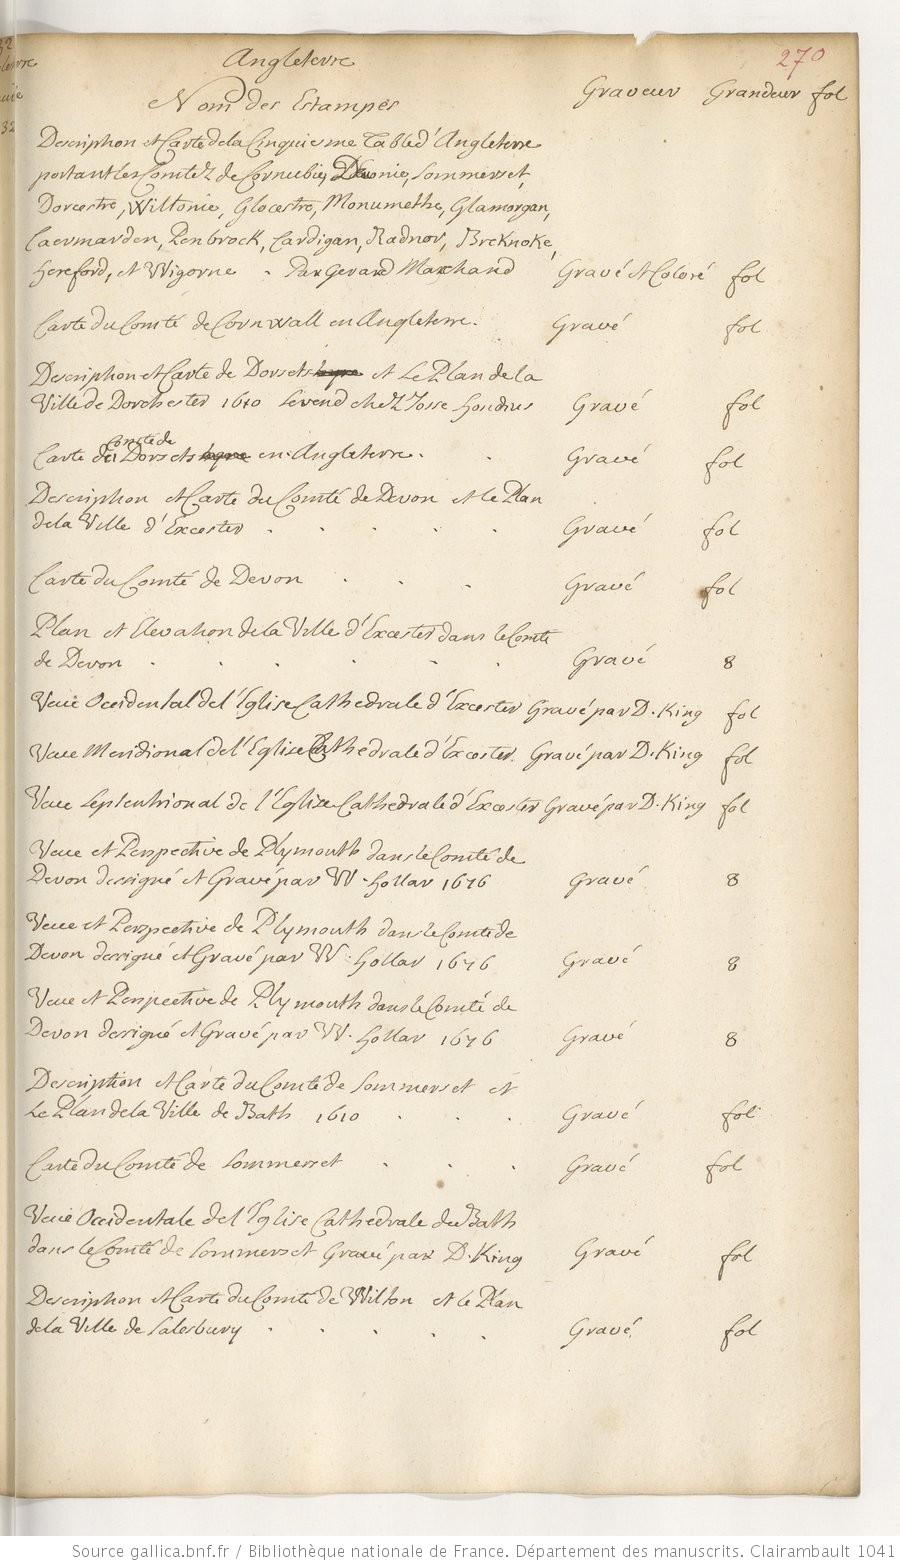 270
Angleterre
Nom des Estampes Graveur Grandeur fol
Description et Carte de la Cinquiesme Table d'Angleterre
portant les Comtez de Cornubie, Devonie, Sommerset,
Dorcestre, Wiltonie, Glocestre, Monumethe, Glamorgan,
Caermarden, Penbrock, Cardigan, Radnor, Breknoke,
Hereford, et Wigorne . Par Gerard Marchand Gravé et Coloré fol
Carte du Comté de Cornwall en Angleterre. Gravé fol
Description et Carte de Dorset et Le Plan de la
Ville de Dorchester 1610 se vend chez Josse Hondius Gravé fol
Carte du Comté de Dorset en Angleterre. Gravé fol
Description et Carte du Comté de Devon et le Plan
de la Ville d'Excester Gravé fol
Carte du Comté de Devon Gravé fol
Plan et Elevation de la Ville d'Excester dans le Comté
de Devon Gravé 8
Veue Occidental de l'Eglise Cathedrale d'Excester Gravé par D. King fol
Veue Meridional de l'Eglise Cathedrale d'Excester. Gravé par D. King fol
Veue Septentrional de l'Eglise Cathedrale d'Excester Gravé par D. King fol
Veue et Perspective de Plymouth dans le Comté de
Devon dessigné et Gravé par W. Hollar 1676 Gravé 8
Veue et Perspective de Plymouth dans le Comté de
Devon dessigné et Gravé par W. Hollar 1676 Gravé 8
Veue et Perspective de Plymouth dans le Comté de
Devon dessigné et Gravé par W. Hollar 1676 Gravé 8
Description et Carte du Comté de Sommerset et
Le Plan de la Ville de Bath 1610 Gravé fol
Carte du Comté de Sommerset Gravé fol
Veue Occidentale de l'Eglise Cathedrale de Bath
dans le Comté de Sommerset Gravé par D. King Gravé fol
Description et Carte du Comté de Wilton et le Plan
de la Ville de Salesbury Gravé fol
Source gallica.bnf.fr / Bibliothèque nationale de France. Département des manuscrits. Clairambault 1041